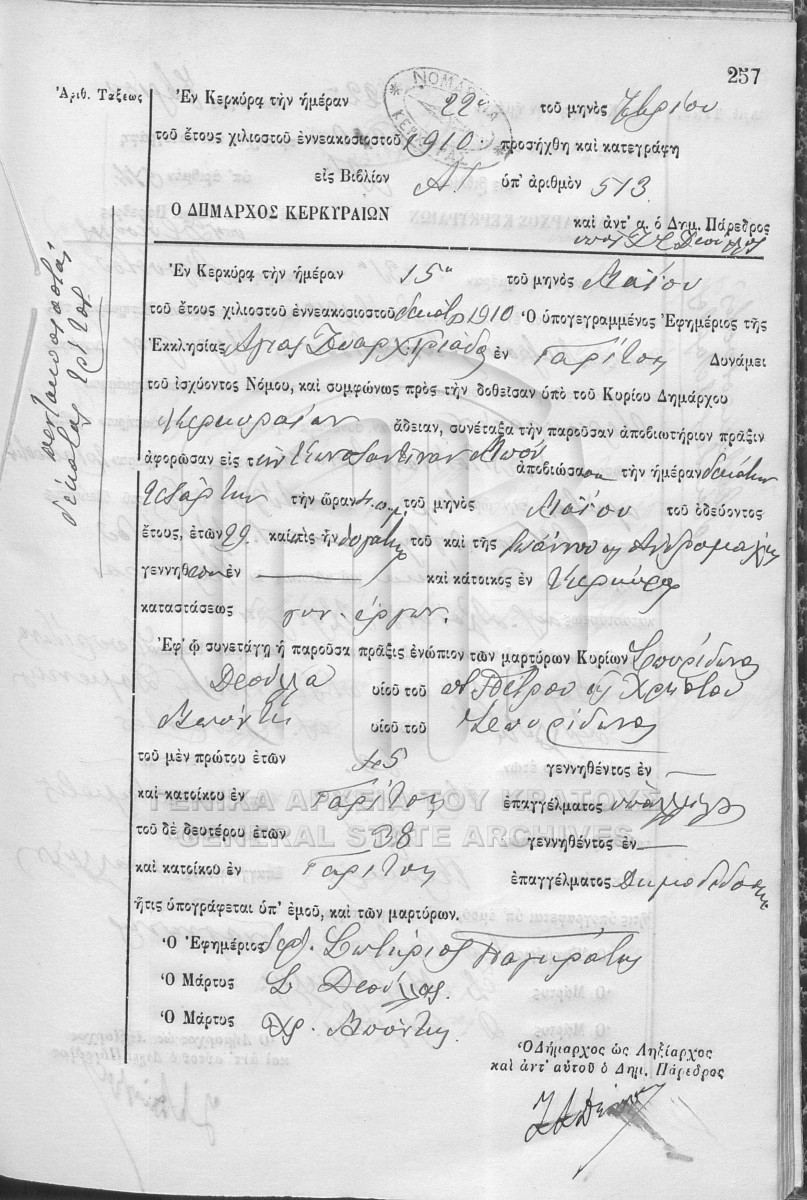 257
Ἀριθ. Τάξεως
Ἐν Κερκύρᾳ τὴν ἡμέραν 22α τοῦ μηνὸς
τοῦ ἔτους χιλιοστοῦ ἐννεακοσιοστοῦ 1910 προσήχθη καὶ κατεγράφη
εἰς Βιβλίον ὑπ' ἀριθμὸν 513
Ο ΔΗΜΑΡΧΟΣ ΚΕΡΚΥΡΑΙΩΝ
καὶ ἀντ' α. ὁ Δημ. Πάρεδρος
ΝΟΜΑΡΧΙΑ ΚΕΡΚΥΡΑΣ
πεντακοσιοστὸς
δέκατος τρίτος
Ἐν Κερκύρᾳ τὴν ἡμέραν 15η τοῦ μηνὸς Μαΐου
τοῦ ἔτους χιλιοστοῦ ἐννεακοσιοστοῦ δεκάτ 1910 Ὁ ὑπογεγραμμένος Ἐφημέριος τῆς
Ἐκκλησίας ἐν Γαρίτσῃ Δυνάμει
τοῦ ἰσχύοντος Νόμου, καὶ συμφώνως πρὸς τὴν δοθεῖσαν ὑπὸ τοῦ Κυρίου Δημάρχου
Κερκυραίων ἄδειαν, συνέταξα τὴν παροῦσαν ἀποβιωτήριον πρᾶξιν
ἀφορῶσαν εἰς τὴν Κωνσταντίναν ἀποβιώσασαν τὴν ἡμέραν δεκάτην
τετάρτην τὴν ὥραν τοῦ μηνὸς Μαΐου τοῦ ὁδεύοντος
ἔτους, ἐτῶν 29 καὶ τις ἦν θυγάτηρ τοῦ καὶ τῆς Ἰωάννου κ Ἀνδρομάχης
γεννηθεῖσαν ἐν καὶ κάτοικος ἐν Κερκύρᾳ
καταστάσεως
Ἐφ' ᾧ συνετάγη ἡ παροῦσα πρᾶξις ἐνώπιον τῶν μαρτύρων Κυρίων Σπυρίδωνος
Δεσύλλα υἱοῦ τοῦ Πέτρου κ Χρήστου
υἱοῦ τοῦ Σπυρίδωνος
τοῦ μὲν πρώτου ἐτῶν 45 γεννηθέντος ἐν
καὶ κατοίκου ἐν Γαρίτσῃ ἐπαγγέλματος
τοῦ δὲ δευτέρου ἐτῶν 38 γεννηθέντος ἐν
καὶ κατοίκου ἐν Γαρίτσῃ ἐπαγγέλματος
ἥτις ὑπογράφεται ὑπ' ἐμοῦ, καὶ τῶν μαρτύρων.
Ὁ Ἐφημέριος Σωτήριος
Ὁ Μάρτυς Σ. Δεσύλλας
Ὁ Μάρτυς Χρ.
Ὁ Δήμαρχος ὡς Ληξίαρχος
καὶ ἀντ' αὐτοῦ ὁ Δημ. Πάρεδρος
ΓΕΝΙΚΑ ΑΡΧΕΙΑ ΤΟΥ ΚΡΑΤΟΥΣ
GENERAL STATE ARCHIVES